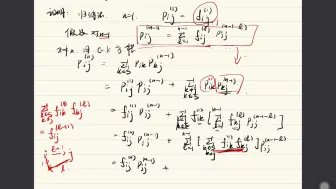 证明: 归纳法 n=1. P_{ij}^{(1)} = f_{ij}^{(1)}
假设对 n-1. P_{ij}^{(n-1)} = \sum_{l=1}^{n-1} f_{ij}^{(l)} P_{jj}^{(n-1-l)}
对 n. 由 C-K 方程
P_{ij}^{(n)} = \sum_{k∈S} P_{ik} P_{kj}^{(n-1)}
= P_{ij}^{(1)} P_{jj}^{(n-1)} + \sum_{k≠j} P_{ik} P_{kj}^{(n-1)}
= f_{ij}^{(1)} P_{jj}^{(n-1)} + \sum_{k≠j} [ \sum_{l=1}^{n-1} f_{ik}^{(1)} f_{kj}^{(l)} P_{jj}^{(n-1-l)} ]
= f_{ij}^{(1)} P_{jj}^{(n-1)} + \sum_{l=1}^{n-1} [ \sum_{k≠j} f_{ik}^{(1)} f_{kj}^{(l)} ] P_{jj}^{(n-1-l)}
= f_{ij}^{(1)} P_{jj}^{(n-1)} +
\sum_{k≠j} f_{ik}^{(1)} f_{kj}^{(l)}
= f_{ij}^{(l+1)}